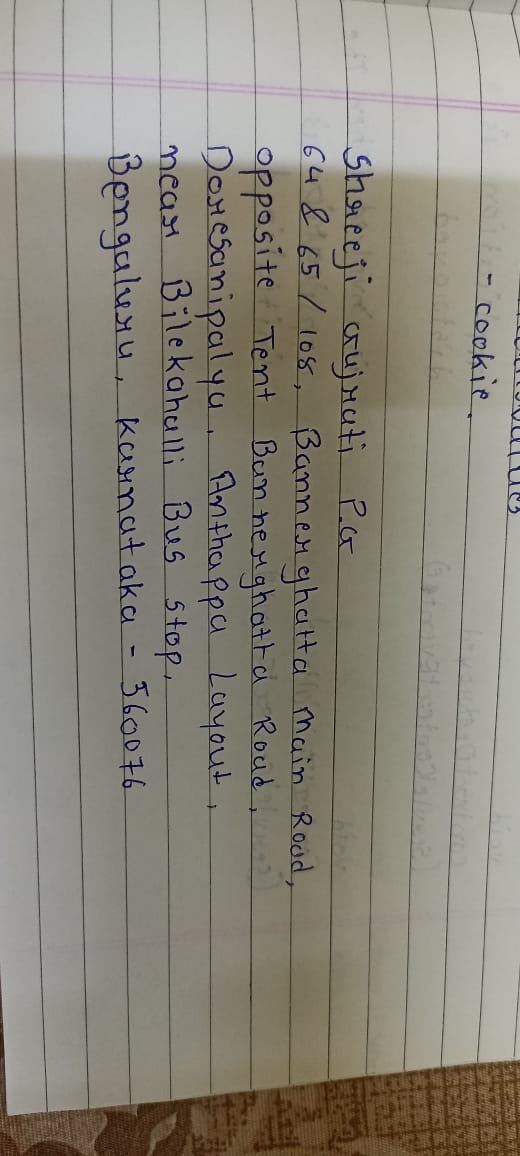 - cookie.
Shreeji Gujrati P.G
64 & 65/108, Bannerghatta Main Road,
opposite Tent Bannerghatta Road,
Doresanipalya, Anthappa Layout,
near Bilekahalli Bus stop,
Bengaluru, Karnataka - 560076